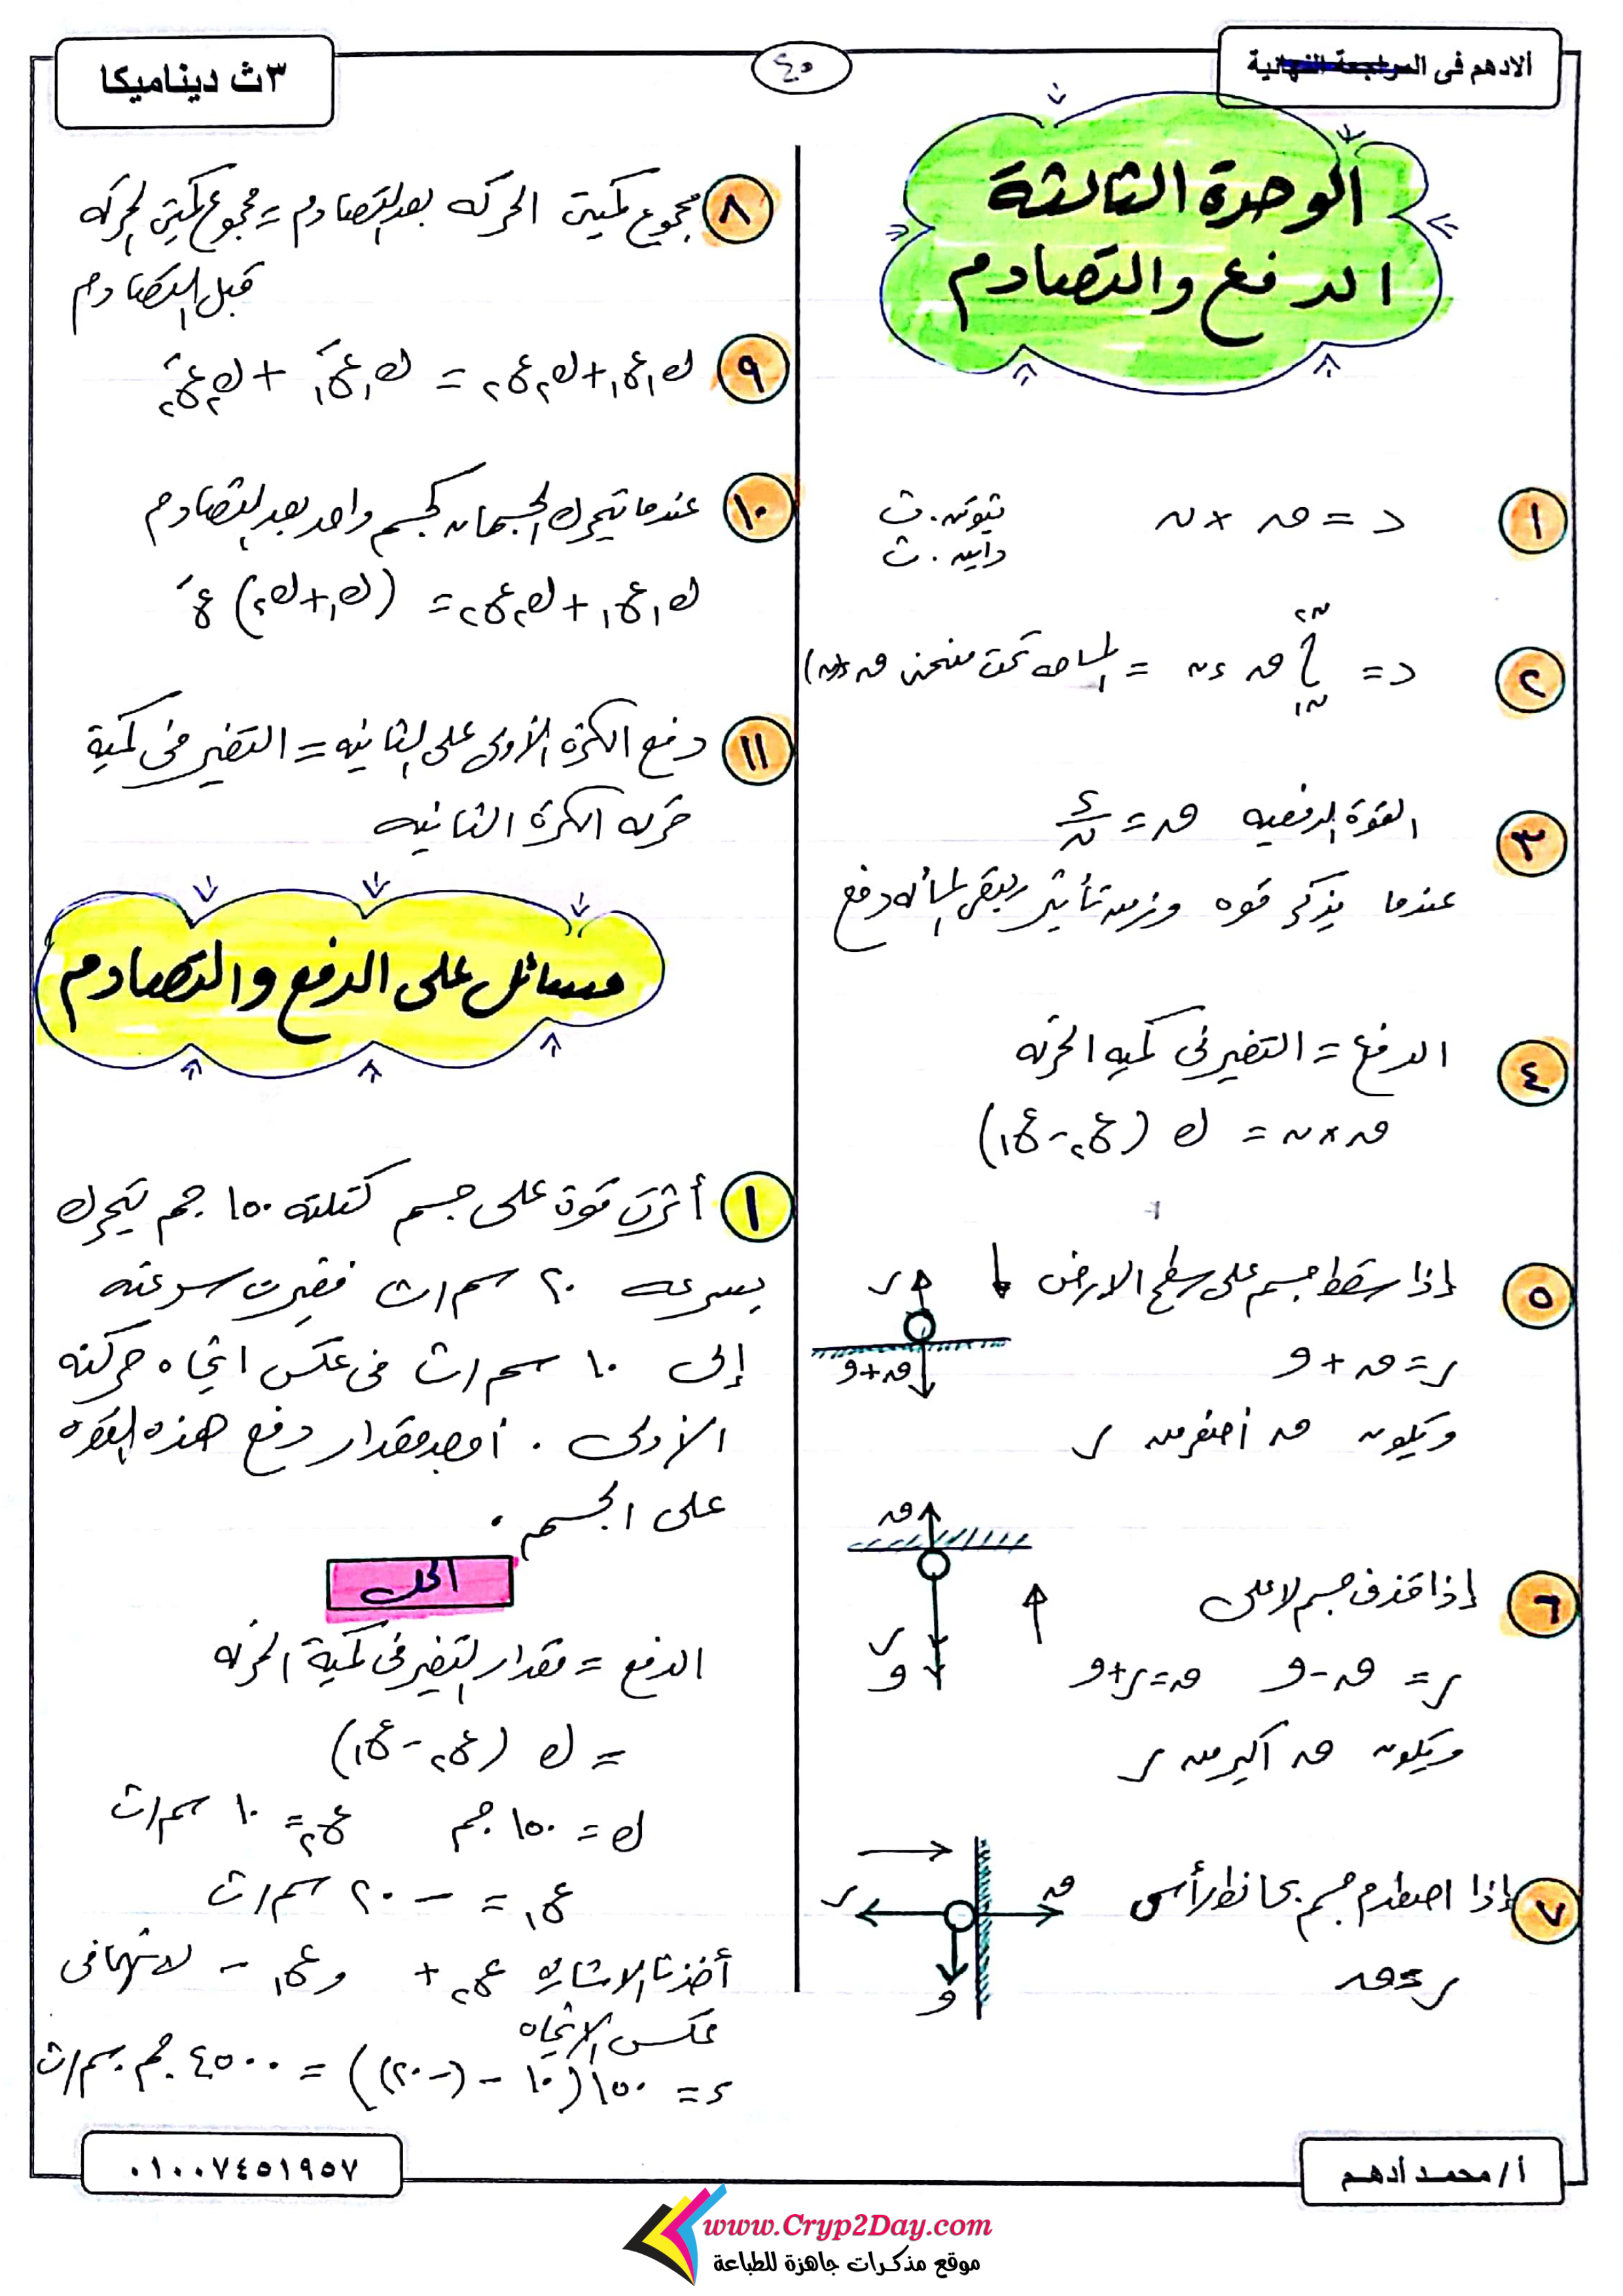 الادهم فى المراجعة النهائية
٤٥
٣ث ديناميكا
الوحدة الثالثة
الدفع والتصادم
١ د = ق × ن نيوتن.ث
داين.ث
٢ د = ∫ ق ءن = المساحه تحت منحنى ق
ن٢
ن١
٣ القوة الدفعيه ق = د/ن
عندما يذكر قوه وزمن تأثير يبقى المسأله دفع
٤ الدفع = التغير فى كميه الحركه
ق × ن = ك (ع٢ - ع١)
٥ إذا سقط جسم على سطح الارض
ر = ق + و
ويكون ق اصغر من ر
ر
ق+و
٦ إذا قذف جسم لاعلى
ر = ق - و ق = ر + و
ويكون ق اكبر من ر
ق
ر
و
٧ إذا اصطدم جسم بحائط رأسى
ر = ق
ق
ر
و
٨ مجموع كميتى الحركه بعد التصادم = مجموع كميتى الحركه
قبل التصادم
٩ ك١ع١ + ك٢ع٢ = ك١عَ١ + ك٢عَ٢
١٠ عندما يتحرك الجسمان كجسم واحد بعد التصادم
ك١ع١ + ك٢ع٢ = (ك١ + ك٢) عَ
١١ دفع الكرة الأولى على الثانيه = التغير فى كمية
حركه الكرة الثانيه
مسائل على الدفع والتصادم
١ أثرت قوة على جسم كتلته ١٥٠ جم يتحرك
بسرعه ٢٠ سم/ث فغيرت سرعته
إلى ١٠ سم/ث فى عكس اتجاه حركته
الأولى . أوجد مقدار دفع هذه القوه
على الجسم .
الحل
الدفع = مقدار التغير فى كمية الحركه
= ك (ع٢ - ع١)
ك = ١٥٠ جم ع٢ = ١٠ سم/ث
ع١ = - ٢٠ سم/ث
أخذنا الاشاره ع٢ + و ع١ - لانهما فى
عكس الاتجاه
د = ١٥٠ (١٠ - (-٢٠)) = ٤٥٠٠ جم.سم/ث
أ/ محمد أدهم
٠١٠٠٧٤٥١٩٥٧
www.Cryp2Day.com
موقع مذكرات جاهزة للطباعة